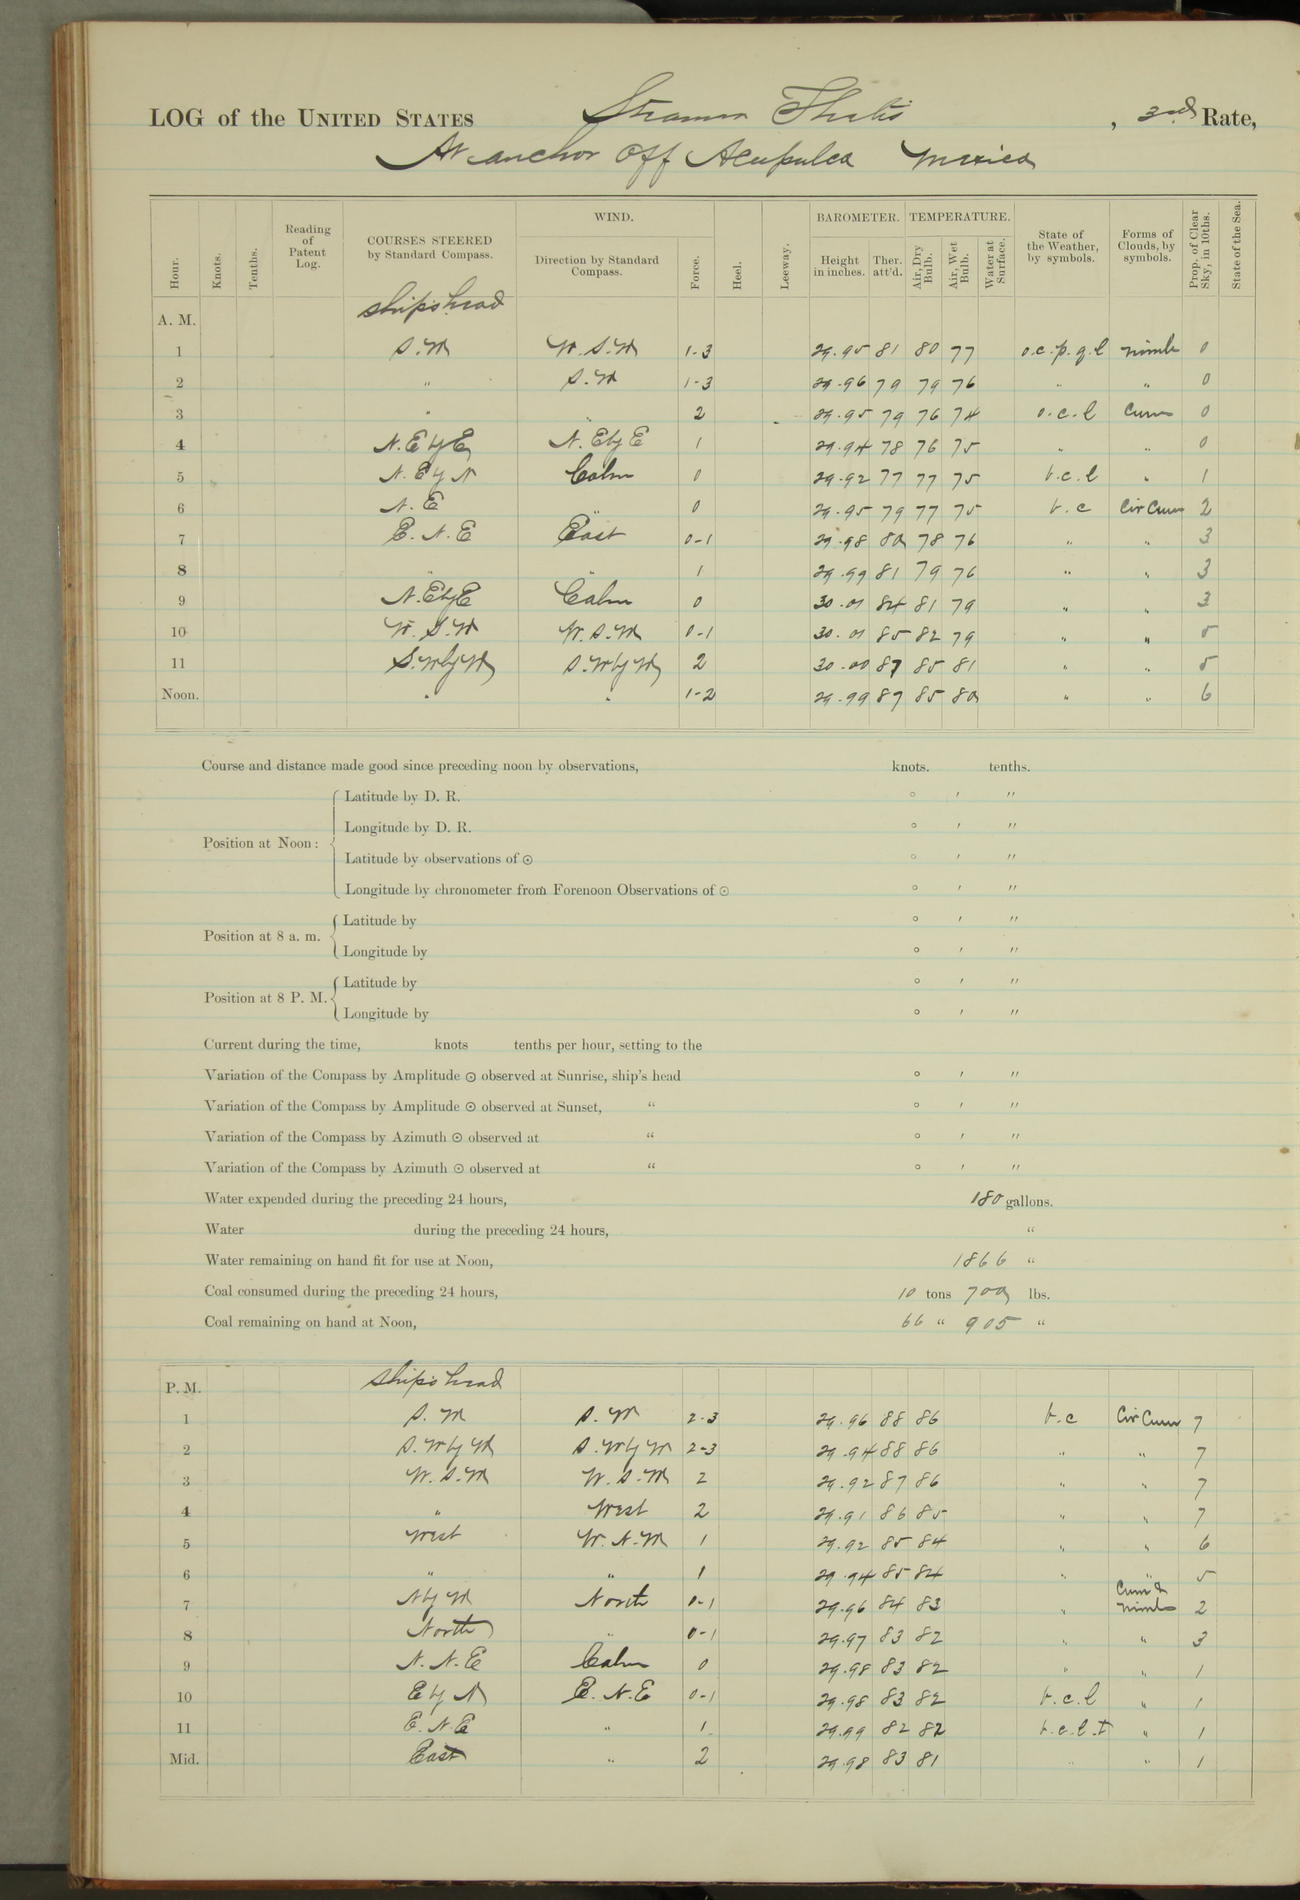 LOG of the UNITED STATES Steamer Thetis, 3rd Rate,
At anchor off Acapulco Mexico
Hour. Knots. Tenths. Reading of Patent Log. COURSES STEERED by Standard Compass. WIND. Direction by Standard Compass. Force. Heel. Leeway. BAROMETER. Height in inches. Ther. att'd. TEMPERATURE. Air, Dry Bulb. Air, Wet Bulb. Water at Surface. State of the Weather, by symbols. Forms of Clouds, by symbols. Prop. of Clear Sky, in 10ths. State of the Sea.
A. M. ship's head
1 S.W W.S.W 1-3 29.95 81 80 77 o.c.p.q.l Nimb 0
2 " S.W 1-3 29.96 79 79 76 " " 0
3 " " 2 29.95 79 76 74 o.c.l Cum 0
4 N.E by E N.E by E 1 29.94 78 76 75 " " 0
5 N.E by N Calm 0 29.92 77 77 75 b.c.l " 1
6 N.E " 0 29.95 79 77 75 b.c Cir Cum 2
7 E.N.E East 0-1 29.98 80 78 76 " " 3
8 " " 1 29.99 81 79 76 " " 3
9 N.E by E Calm 0 30.01 84 81 79 " " 3
10 W.S.W W.S.W 0-1 30.01 85 82 79 " " 5
11 S.W by W S.W by W 2 30.00 87 85 81 " " 5
Noon. " " 1-2 29.99 87 85 80 " " 6
Course and distance made good since preceding noon by observations, knots. tenths.
Position at Noon:
Latitude by D. R. ° ′ ″
Longitude by D. R. ° ′ ″
Latitude by observations of ☉ ° ′ ″
Longitude by chronometer from Forenoon Observations of ☉ ° ′ ″
Position at 8 a. m.
Latitude by ° ′ ″
Longitude by ° ′ ″
Position at 8 P. M.
Latitude by ° ′ ″
Longitude by ° ′ ″
Current during the time, knots tenths per hour, setting to the
Variation of the Compass by Amplitude ☉ observed at Sunrise, ship's head ° ′ ″
Variation of the Compass by Amplitude ☉ observed at Sunset, “ ° ′ ″
Variation of the Compass by Azimuth ☉ observed at “ ° ′ ″
Variation of the Compass by Azimuth ☉ observed at “ ° ′ ″
Water expended during the preceding 24 hours, 180 gallons.
Water during the preceding 24 hours, “
Water remaining on hand fit for use at Noon, 1866 “
Coal consumed during the preceding 24 hours, 10 tons 700 lbs.
Coal remaining on hand at Noon, 66 “ 905 “
P. M. ship's head
1 S.W S.W 2-3 29.96 88 86 b.c Cir Cum 7
2 S.W by W S.W by W 2-3 29.94 88 86 " " 7
3 W.S.W W.S.W 2 29.92 87 86 " " 7
4 " West 2 29.91 86 85 " " 7
5 West W.N.W 1 29.92 85 84 " " 6
6 " " 1 29.94 85 84 " " 5
7 N by W North 0-1 29.96 84 83 " Cum & Nimb 2
8 North " 0-1 29.97 83 82 " " 3
9 N.N.E Calm 0 29.98 83 82 " " 1
10 E by N E.N.E 0-1 29.98 83 82 b.c.l " 1
11 E.N.E " 1 29.99 82 82 b.c.l.t " 1
Mid. East " 2 29.98 83 81 " " 1